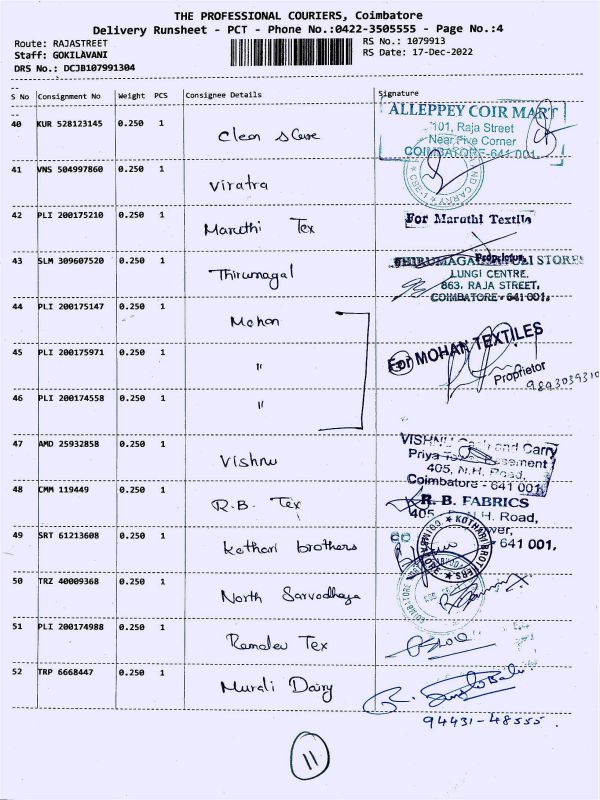 THE PROFESSIONAL COURIERS, Coimbatore
Delivery Runsheet - PCT - Phone No.:0422-3505555 - Page No.:4
Route: RAJASTREET
RS No.: 1079913
Staff: GOKILAVANI
RS Date: 17-Dec-2022
DRS No.: DCJB107991304
S No Consignment No Weight PCS Consignee Details Signature
40 KUR 528123145 0.250 1 Clean s Care
ALLEPPEY COIR MART
101, Raja Street
Near Five Corner
COIMBATORE-641 001
41 VNS 504997860 0.250 1 Viratra
AND CARRY
42 PLI 200175210 0.250 1 Maruthi Tex
For Maruthi Textile
Proprietor
43 SLM 309607520 0.250 1 Thirumagal
STORES
LUNGI CENTRE.
863, RAJA STREET,
COIMBATORE - 641 001.
44 PLI 200175147 0.250 1 Mohan
45 PLI 200175971 0.250 1 "
For MOHAN TEXTILES
Proprietor
46 PLI 200174558 0.250 1 "
47 AMD 25932858 0.250 1 Vishnu
VISHNU Cash and Carry
Priya Basement
405, N.H. Road,
Coimbatore - 641 001
48 CMM 119449 0.250 1 R.B. Tex
R. B. FABRICS
405 N.H. Road,
641 001.
49 SRT 61213608 0.250 1 Kothari brothers
KOTHARI BROTHERS
50 TRZ 40009368 0.250 1 North Sarvodhaya
COIMBATORE
51 PLI 200174988 0.250 1 Ramdev Tex
52 TRP 6668447 0.250 1 Murali Dairy
94431-48555
11